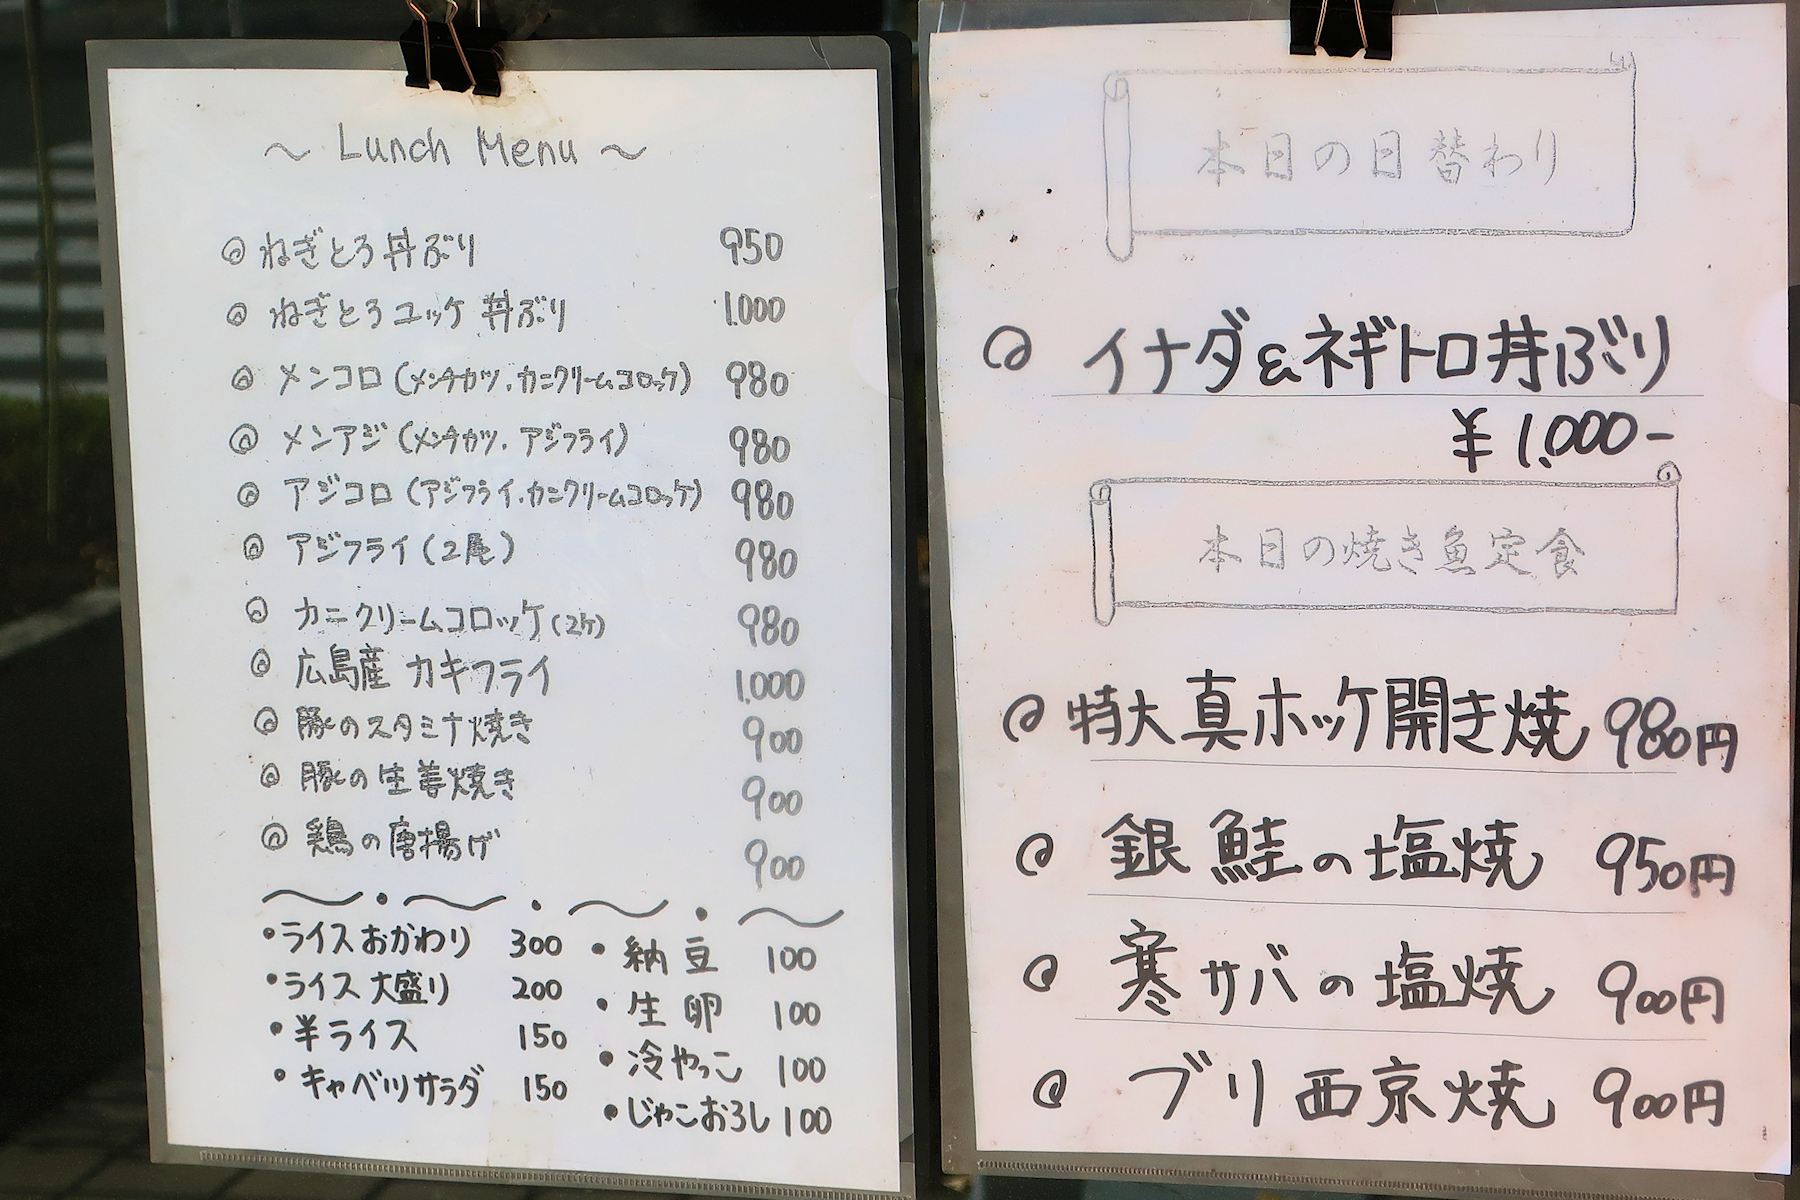 ～ Lunch Menu ～
◎ ねぎとろ丼ぶり 950
◎ ねぎとろユッケ丼ぶり 1.000
◎ メンコロ (メンチカツ.カニクリームコロッケ) 980
◎ メンアジ (メンチカツ.アジフライ) 980
◎ アジコロ (アジフライ.カニクリームコロッケ) 980
◎ アジフライ (2尾) 980
◎ カニクリームコロッケ (2ケ) 980
◎ 広島産 カキフライ 1.000
◎ 豚のスタミナ焼き 900
◎ 豚の生姜焼き 900
◎ 鶏の唐揚げ 900
・ライスおかわり 300
・ライス大盛り 200
・半ライス 150
・キャベツサラダ 150
・納豆 100
・生卵 100
・冷やっこ 100
・じゃこおろし 100
本日の日替わり
◎ イナダ&ネギトロ丼ぶり
¥1.000-
本日の焼き魚定食
◎ 特大真ホッケ開き焼 980円
◎ 銀鮭の塩焼 950円
◎ 寒サバの塩焼 900円
◎ ブリ西京焼 900円